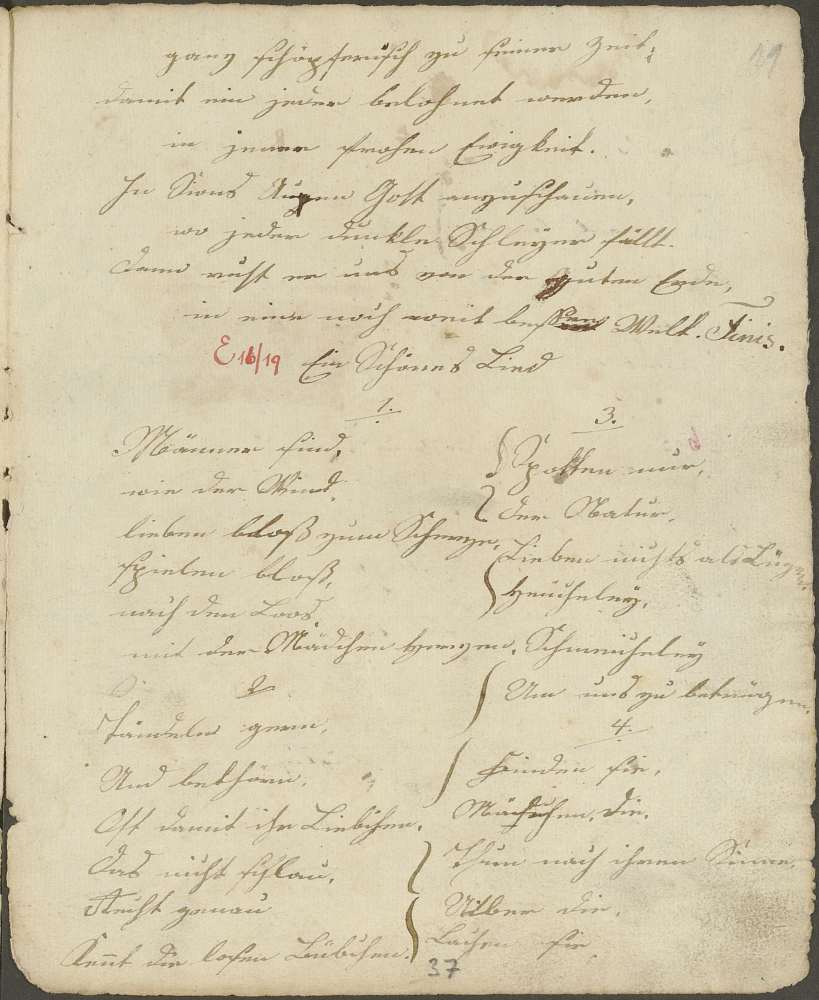 19
ganz schöpferisch zu seiner Zeit;
damit ein jeder belohnet werden,
in jener frohen Ewigkeit.
In Sions Augen Gott anzuschauen,
wo jeder dunkle Schleyer fällt.
Dann ruft er uns von der guten Erde,
in eine noch weit bessere Welt. Finis.
E 16/19 Ein Schönes Lied
1.
Männer sind,
wie der Wind,
lieben bloß zum Scherze,
spielen bloß,
nach den Loos
mit der Mädchen Herzen.
2
Tändeln gern,
Und bethörn,
Oft damit ihr Liebchen.
Das nicht schlau,
Recht genau
Kennt die losen Bübchen.
3.
Spotten nur,
der Natur,
Lieben nichts als Lügen
Heucheley,
Schmeicheley
Um uns zu betrügen.
4.
Finden sie,
Mädchen, die,
Thun nach ihrem Sinne,
Uiber die,
Lachen sie,
37